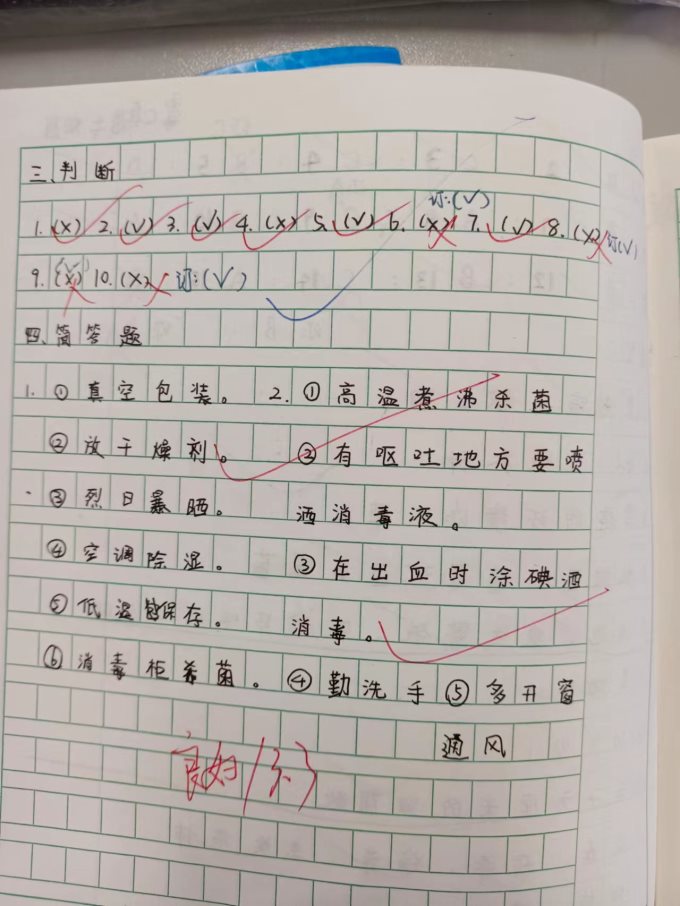 三、判断
订:(√)
1.(×) 2.(√) 3.(√) 4.(×) 5.(√) 6.(×) 7.(√) 8.(×) 订(√)
9.(×) 10.(×) 订:(√)
四、简答题
1. ①真空包装。 2. ①高温煮沸杀菌
②放干燥剂。 ②有呕吐地方要喷
③烈日暴晒。 洒消毒液。
④空调除湿。 ③在出血时涂碘酒
⑤低温保存。 消毒。
⑥消毒柜杀菌。 ④勤洗手 ⑤多开窗
通风
良好